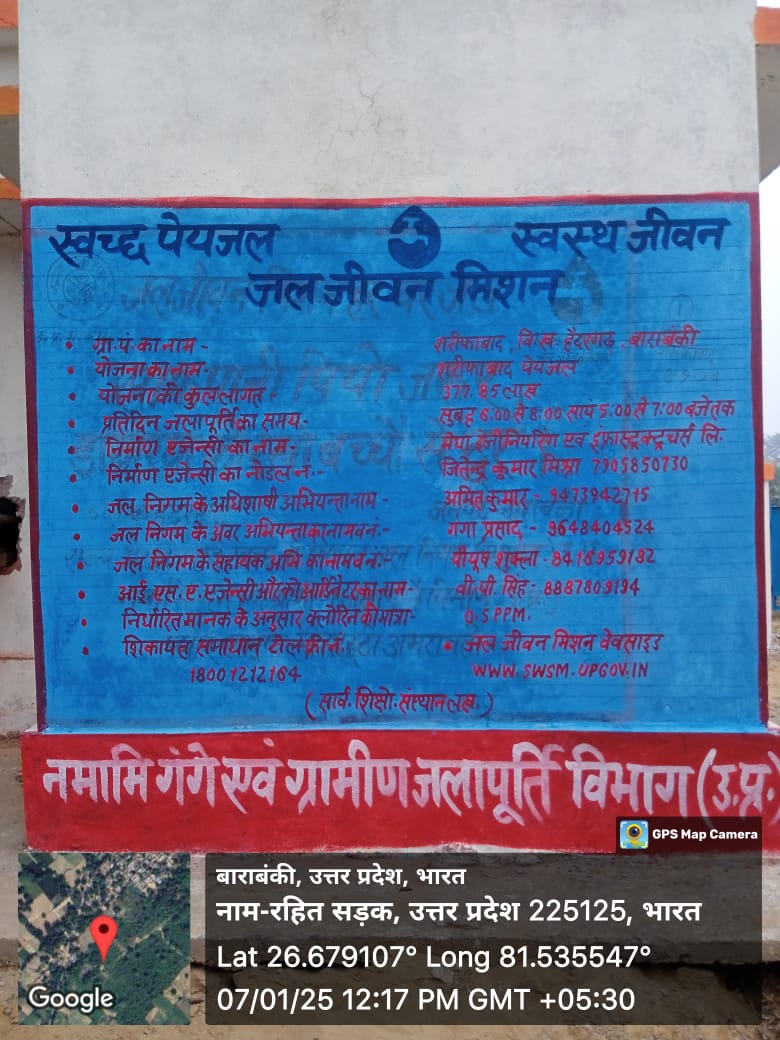 स्वच्छ पेयजल स्वस्थ जीवन
जल जीवन मिशन
• ग्रा.पं. का नाम - शरीफाबाद, वि.ख. हैदरगढ़, बाराबंकी
• योजना का नाम - शरीफाबाद पेयजल
• योजना की कुल लागत - 377.85 लाख
• प्रतिदिन जलापूर्ति का समय - सुबह 6:00 से 8:00 सायं 5:00 से 7:00 बजे तक
• निर्माण एजेन्सी का नाम - मेघा इंजीनियरिंग एवं इंफ्रास्ट्रक्चर्स लि.
• निर्माण एजेन्सी का नोडल नं.- जितेन्द्र कुमार मिश्रा 7905850730
• जल निगम के अधिशाषी अभियन्ता नाम - अमित कुमार - 9473942715
• जल निगम के अवर अभियन्ता का नाम व नं.- गंगा प्रसाद - 9648404524
• जल निगम के सहायक अभि. का नाम व नं.- पीयूष शुक्ला - 8416959182
• आई. एस. ए. एजेन्सी और को आर्डिनेटर का नाम - वी. पी. सिंह - 8887809194
• निर्धारित मानक के अनुसार क्लोरिन की मात्रा- 0.5 PPM.
• शिकायत समाधान टोल फ्री नं. • जल जीवन मिशन वेवसाइड
18001212164 WWW.SWSM.UPGOV.IN
(सार्व. शिक्षो. संस्थान लख.)
नमामि गंगे एवं ग्रामीण जलापूर्ति विभाग (उ.प्र.)
GPS Map Camera
बाराबंकी, उत्तर प्रदेश, भारत
नाम-रहित सड़क, उत्तर प्रदेश 225125, भारत
Lat 26.679107° Long 81.535547°
07/01/25 12:17 PM GMT +05:30
Google